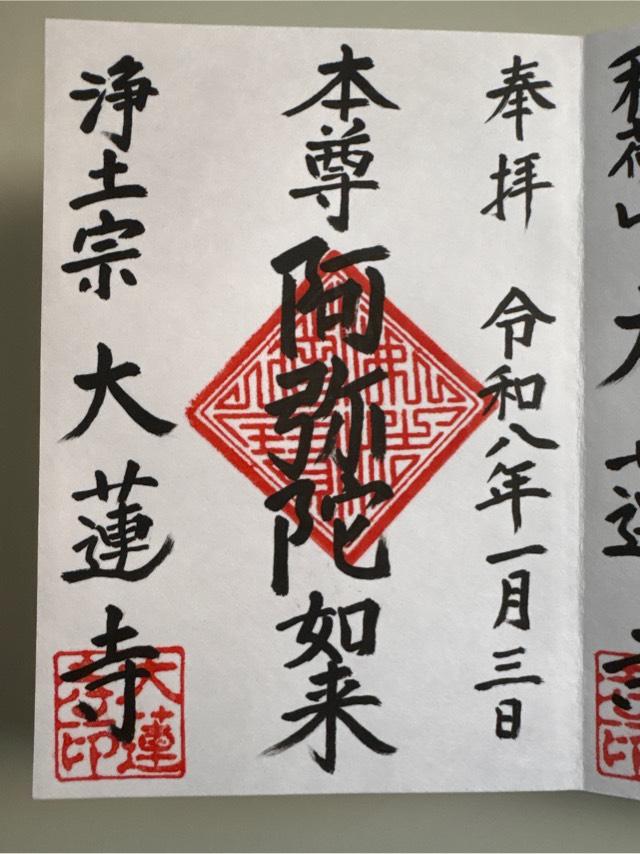 奉拝 令和八年一月三日
本尊 阿弥陀如来
浄土宗 大蓮寺
大蓮寺印